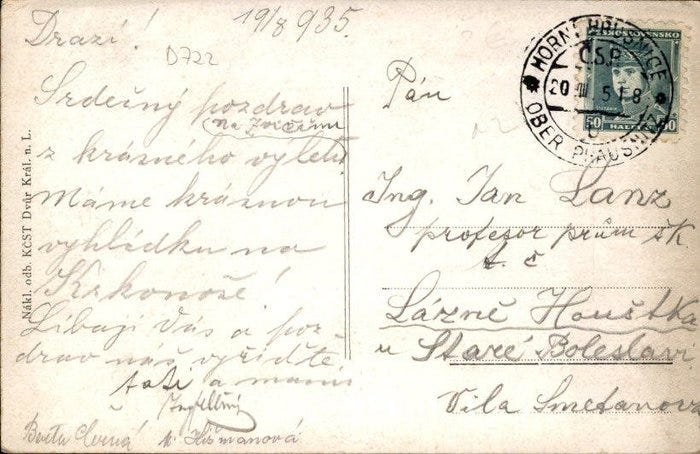 19/8 935.
Drazí!
D722
Srdečný pozdrav
na Zvičinu
z krásného výletu
Máme krásnou
vyhlídku na
Krkonoše!
Líbají Vás a poz-
drav náš vyřiďte
tati a mami
Beata Černá
Hišmanová
Nákl. odb. KČST Dvůr Král. n. L.
HORNÍ BRUSNICE
Č.S.P.
20 VIII 35 18
OBER PRAUSNITZ
ČESKOSLOVENSKO
50 HALÉŘŮ 50
Pán
Ing. Jan Lanz
profesor prům šk
t. č
Lázně Houštka
u Staré Boleslavi
Vila Smetanova